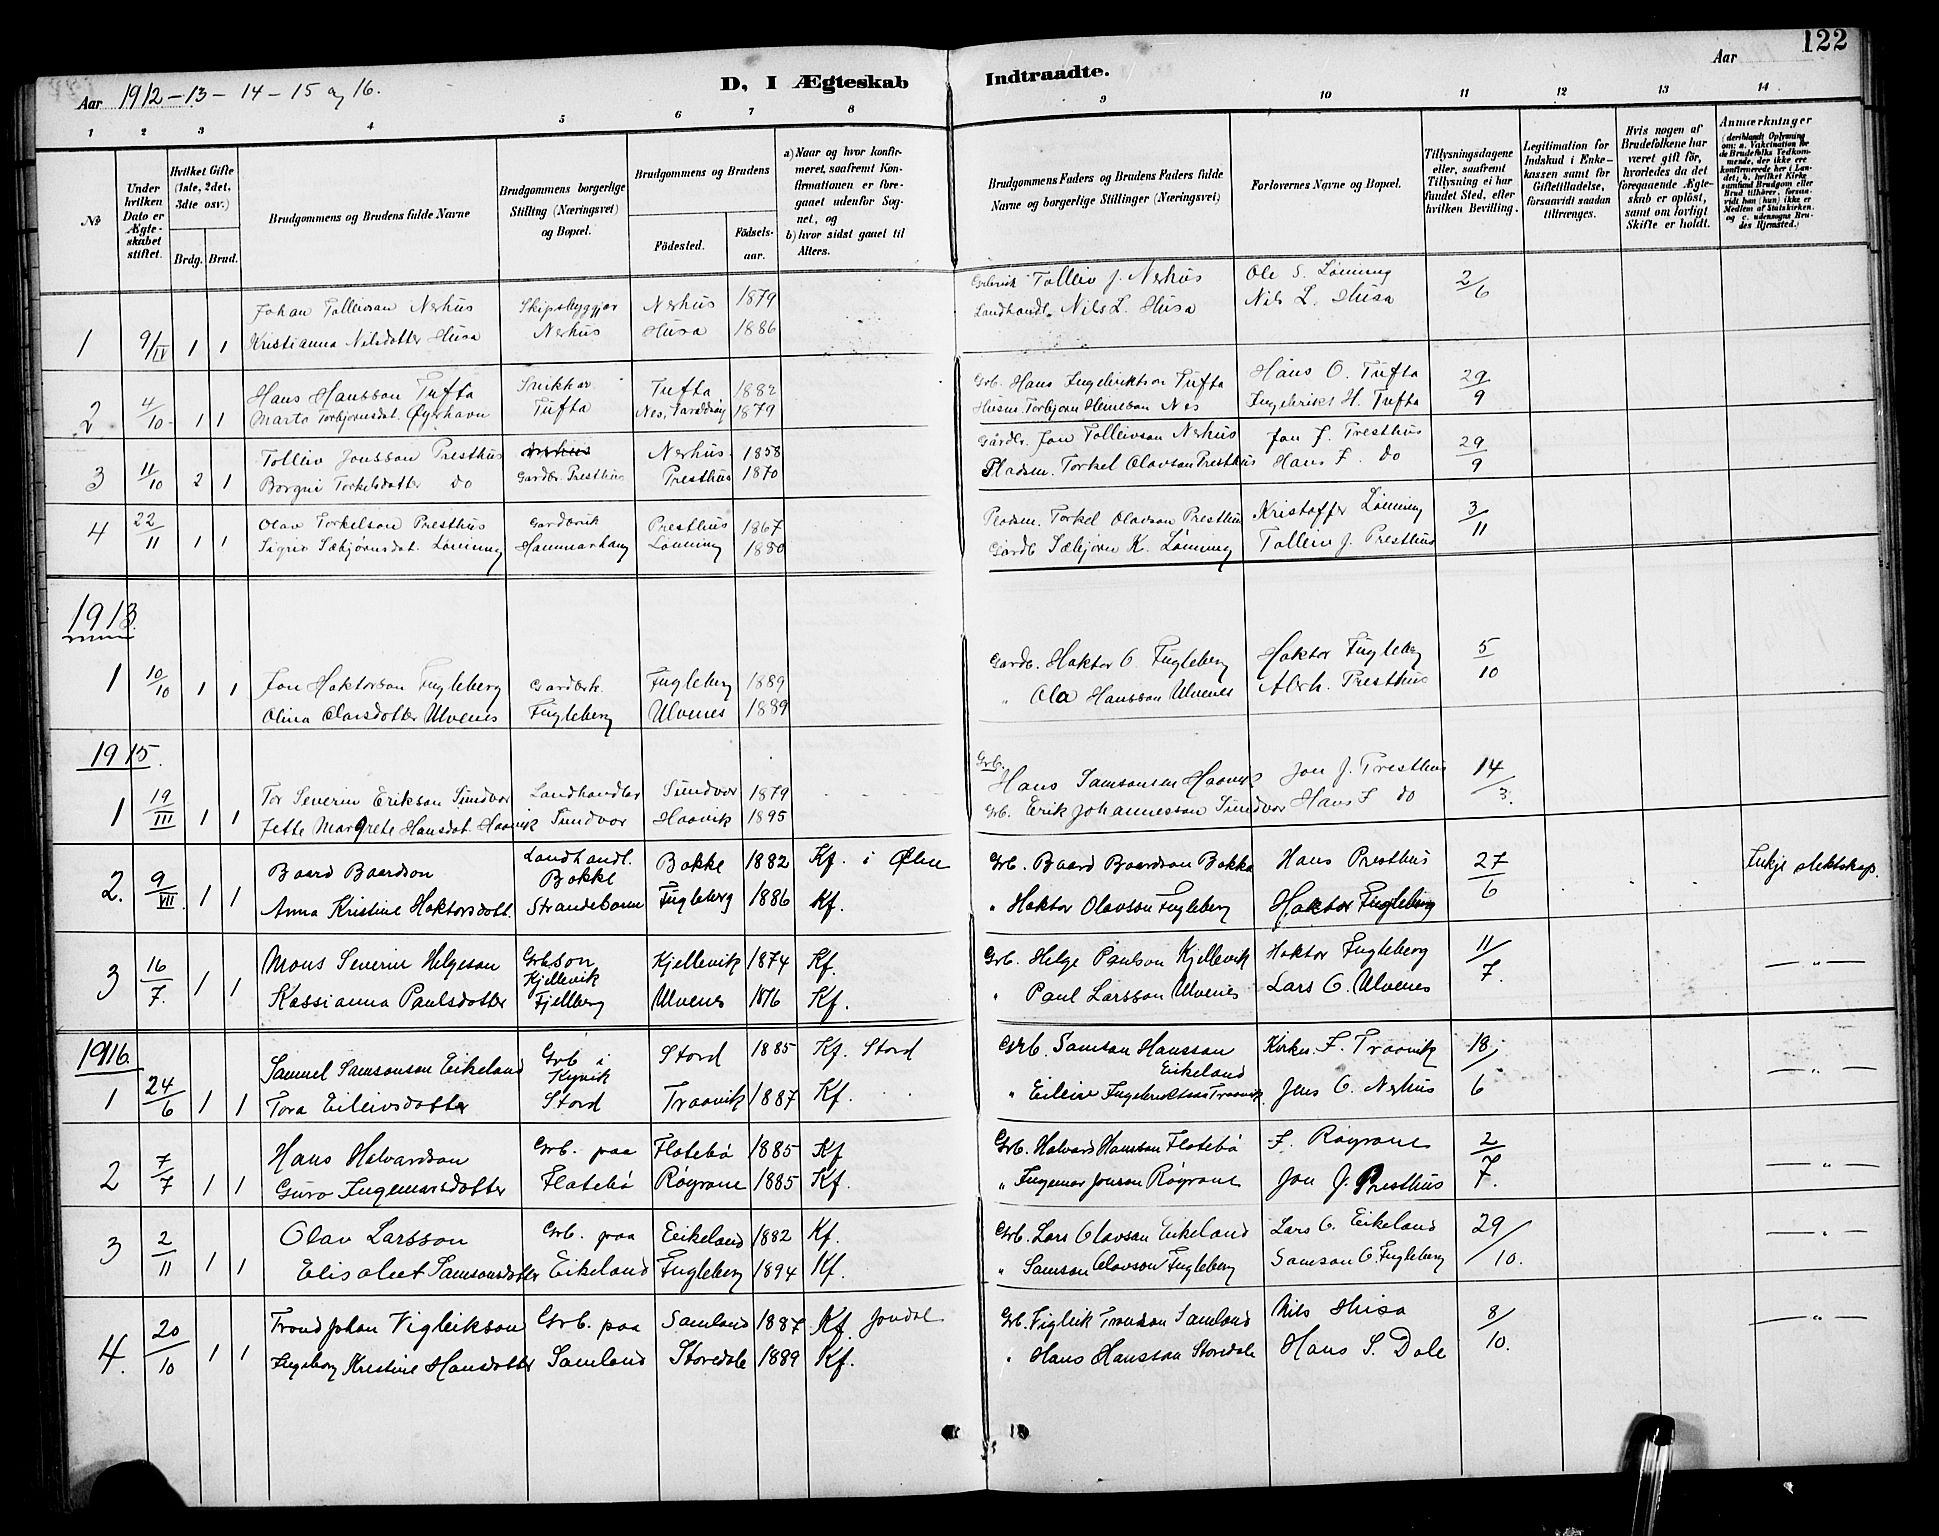 122
Aar 1912-13-14-15 og 16.
D, I Ægteskab Indtraadte.
Aar
1 2 3 4 5 6 7 8 9 10 11 12 13 14
No
Under hvilken Dato er Ægteskabet stiftet.
Hvilket Gifte (1ste, 2det, 3die osv.)
Brdg. Brud.
Brudgommens og Brudens fulde Navne
Brudgommens borgerlige Stilling (Næringsvei) og Bopæl.
Brudgommens og Brudens
Födested.
Födselsaar.
a) Naar og hvor konfirmeret, saafremt Konfirmationen er foregaaet udenfor Sognet, og
b) hvor sidst gaaet til Alters.
Brudgommens Faders og Brudens Faders fulde Navne og borgerlige Stillinger (Næringsvei)
Forlovernes Navne og Bopæl.
Tillysningsdagene eller, saafremt Tillysning ei har fundet Sted, efter hvilken Bevilling.
Legitimation for Indskud i Enkekassen samt for Giftetilladelse, forsaavidt saadan tiltrænges.
Hvis nogen af Brudefolkene har været gift för, hvorledes da det foregaaende Ægteskab er oplöst, samt om lovligt Skifte er holdt.
Anmærkninger
(deriblandt Oplysning om: a. Vakcination for de Brudefolks Vedkommende, der ikke ere konfirmerede her i Landet; b. hvilket Kirkesamfund Brudgom eller Brud tilhører, forsaavidt han (hun) ikke er Medlem af Statskirken, og c. udensogns Brudes Hjemsted.)
1 9/IV 1 1 Johan Tolleivson Nerhus Skipsbyggjar Nerhus 1879 Tolleiv J. Nerhus Ole S. Lönning 2/6
Kristianna Nilsdotter Husa Nerhus Husa 1886 Landhandl. Nils L. Husa Nils L. Husa
2 4/10 1 1 Hans Hansson Tufta Snikkar Tufta 1882 Grb. Hans Ingebriktson Tufta Hans O. Tufta 29/9
Marta Torbjørnsdat. Øyrhavn Tufta Nes, 1879 Husm. Torbjørn Heineson Nes Ingebrikt H. Tufta
3 11/10 2 1 Tolleiv Jonsson Presthus Nerhus 1858 Gardbr. Jon Tolleivson Nerhus Jon J. Presthus 29/9
Borgni Torkelsdotter do Gardbr. Presthus Presthus 1870 Pladsm. Torkel Olavson Presthus Hans J. do
4 22/11 1 1 Olav Torkelson Presthus Gardbruk Presthus 1867 Pladsm. Torkel Olavson Presthus Kristoffer Lönning 3/11
Sigrid Sæbjørnsdat. Lönning Hammarhaug Lönning 1880 Gardb. Sæbjørn K. Lönning Tolleiv J. Presthus
1913.
1 10/10 1 1 Jon Haktorson Fugleberg Gardbr. Fugleberg 1889 Gardb. Haktor O. Fugleberg Haktor Fugleberg 5/10
Olina Olavsdotter Ulvenes Fugleberg Ulvenes 1889 " Ola Hansson Ulvenes Abrh. Presthus
1915.
1 19/III 1 1 Tor Severin Erikson Sundvor Landhandler Sundvor 1879 Grb. Hans Samsonsen Haavik Jon J. Presthus 14/3.
Jette Margrete Hansdat. Haavik Sundvor Haavik 1895 Grb. Erik Johannesson Sundvor Hans J do
2. 9/VII 1 1 Baard Baardson Landhandl. Bakke Bakke 1882 Kf. i Ølen Grb. Baard Baardson Bakka Hans Presthus 27/6 Inkje slektskap.
Anna Kristine Haktorsdott. Strandebarm Fugleberg 1886 Kf. " Haktor Olavson Fugleberg Haktor Fugleberg
3 16/7. 1 1 Mons Severin Helgeson Grbson Kjellevik Kjellevik 1874 Kf. Grb. Helge Paulson Kjellevik Haktor Fugleberg 11/7. — " —
Kassianna Paulsdotter Fjelberg Ulvenes 1876 Kf. " Paul Larsson Ulvenes Lars O. Ulvenes
1916.
1 24/6 1 1 Samuel Samsonson Eikeland Grb i Kyvik Stord 1885 Kf. Stord Grb. Samson Hansson Eikeland Kirkn. F. Traavik 18/6 — " —
Tora Eileivsdotter Stord Traavik 1887 Kf. " Eileiv Ingebriktson Traavik Jens O. Nerhus
2 7/7 1 1 Hans Halvardson Grb. paa Flatebö 1885 Kf Grb. Halvard Hansson Flatebö F. Røyrane 2/7. — " —
Guro Ingemarsdotter Flatebö Røyrane 1885 Kf. " Ingemar Jonson Røyrane Jon J. Presthus
3 2/11 1 1 Olav Larsson Grb. paa Eikeland 1882 Kf. Grb. Lars Olavson Eikeland Lars O. Eikeland 29/10. — " —
Elisabet Samsonsdotter Eikeland Fugleberg 1894 Kf. " Samson Olavson Fugleberg Samson O. Fugleberg
4. 20/10 1 1 Trond Johan Vigleikson Grb. paa Samland 1887 Kf. Jondal Grb. Vigleik Trondson Samland Nils Husa 8/10. — " —
Ingeborg Kristine Hansdotter Samland Storedale 1889 Kf. " Hans Hansson Storedale Hans S. Dale